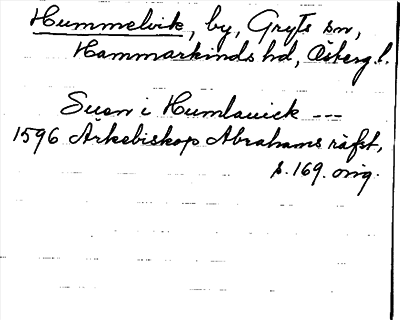 Hummelvik, by, Gryts sn,
Hammarkinds hd, Österg. l.
Suen i Humlauick ---
1596 Ärkebiskop Abrahams räfst,
s. 169. orig.